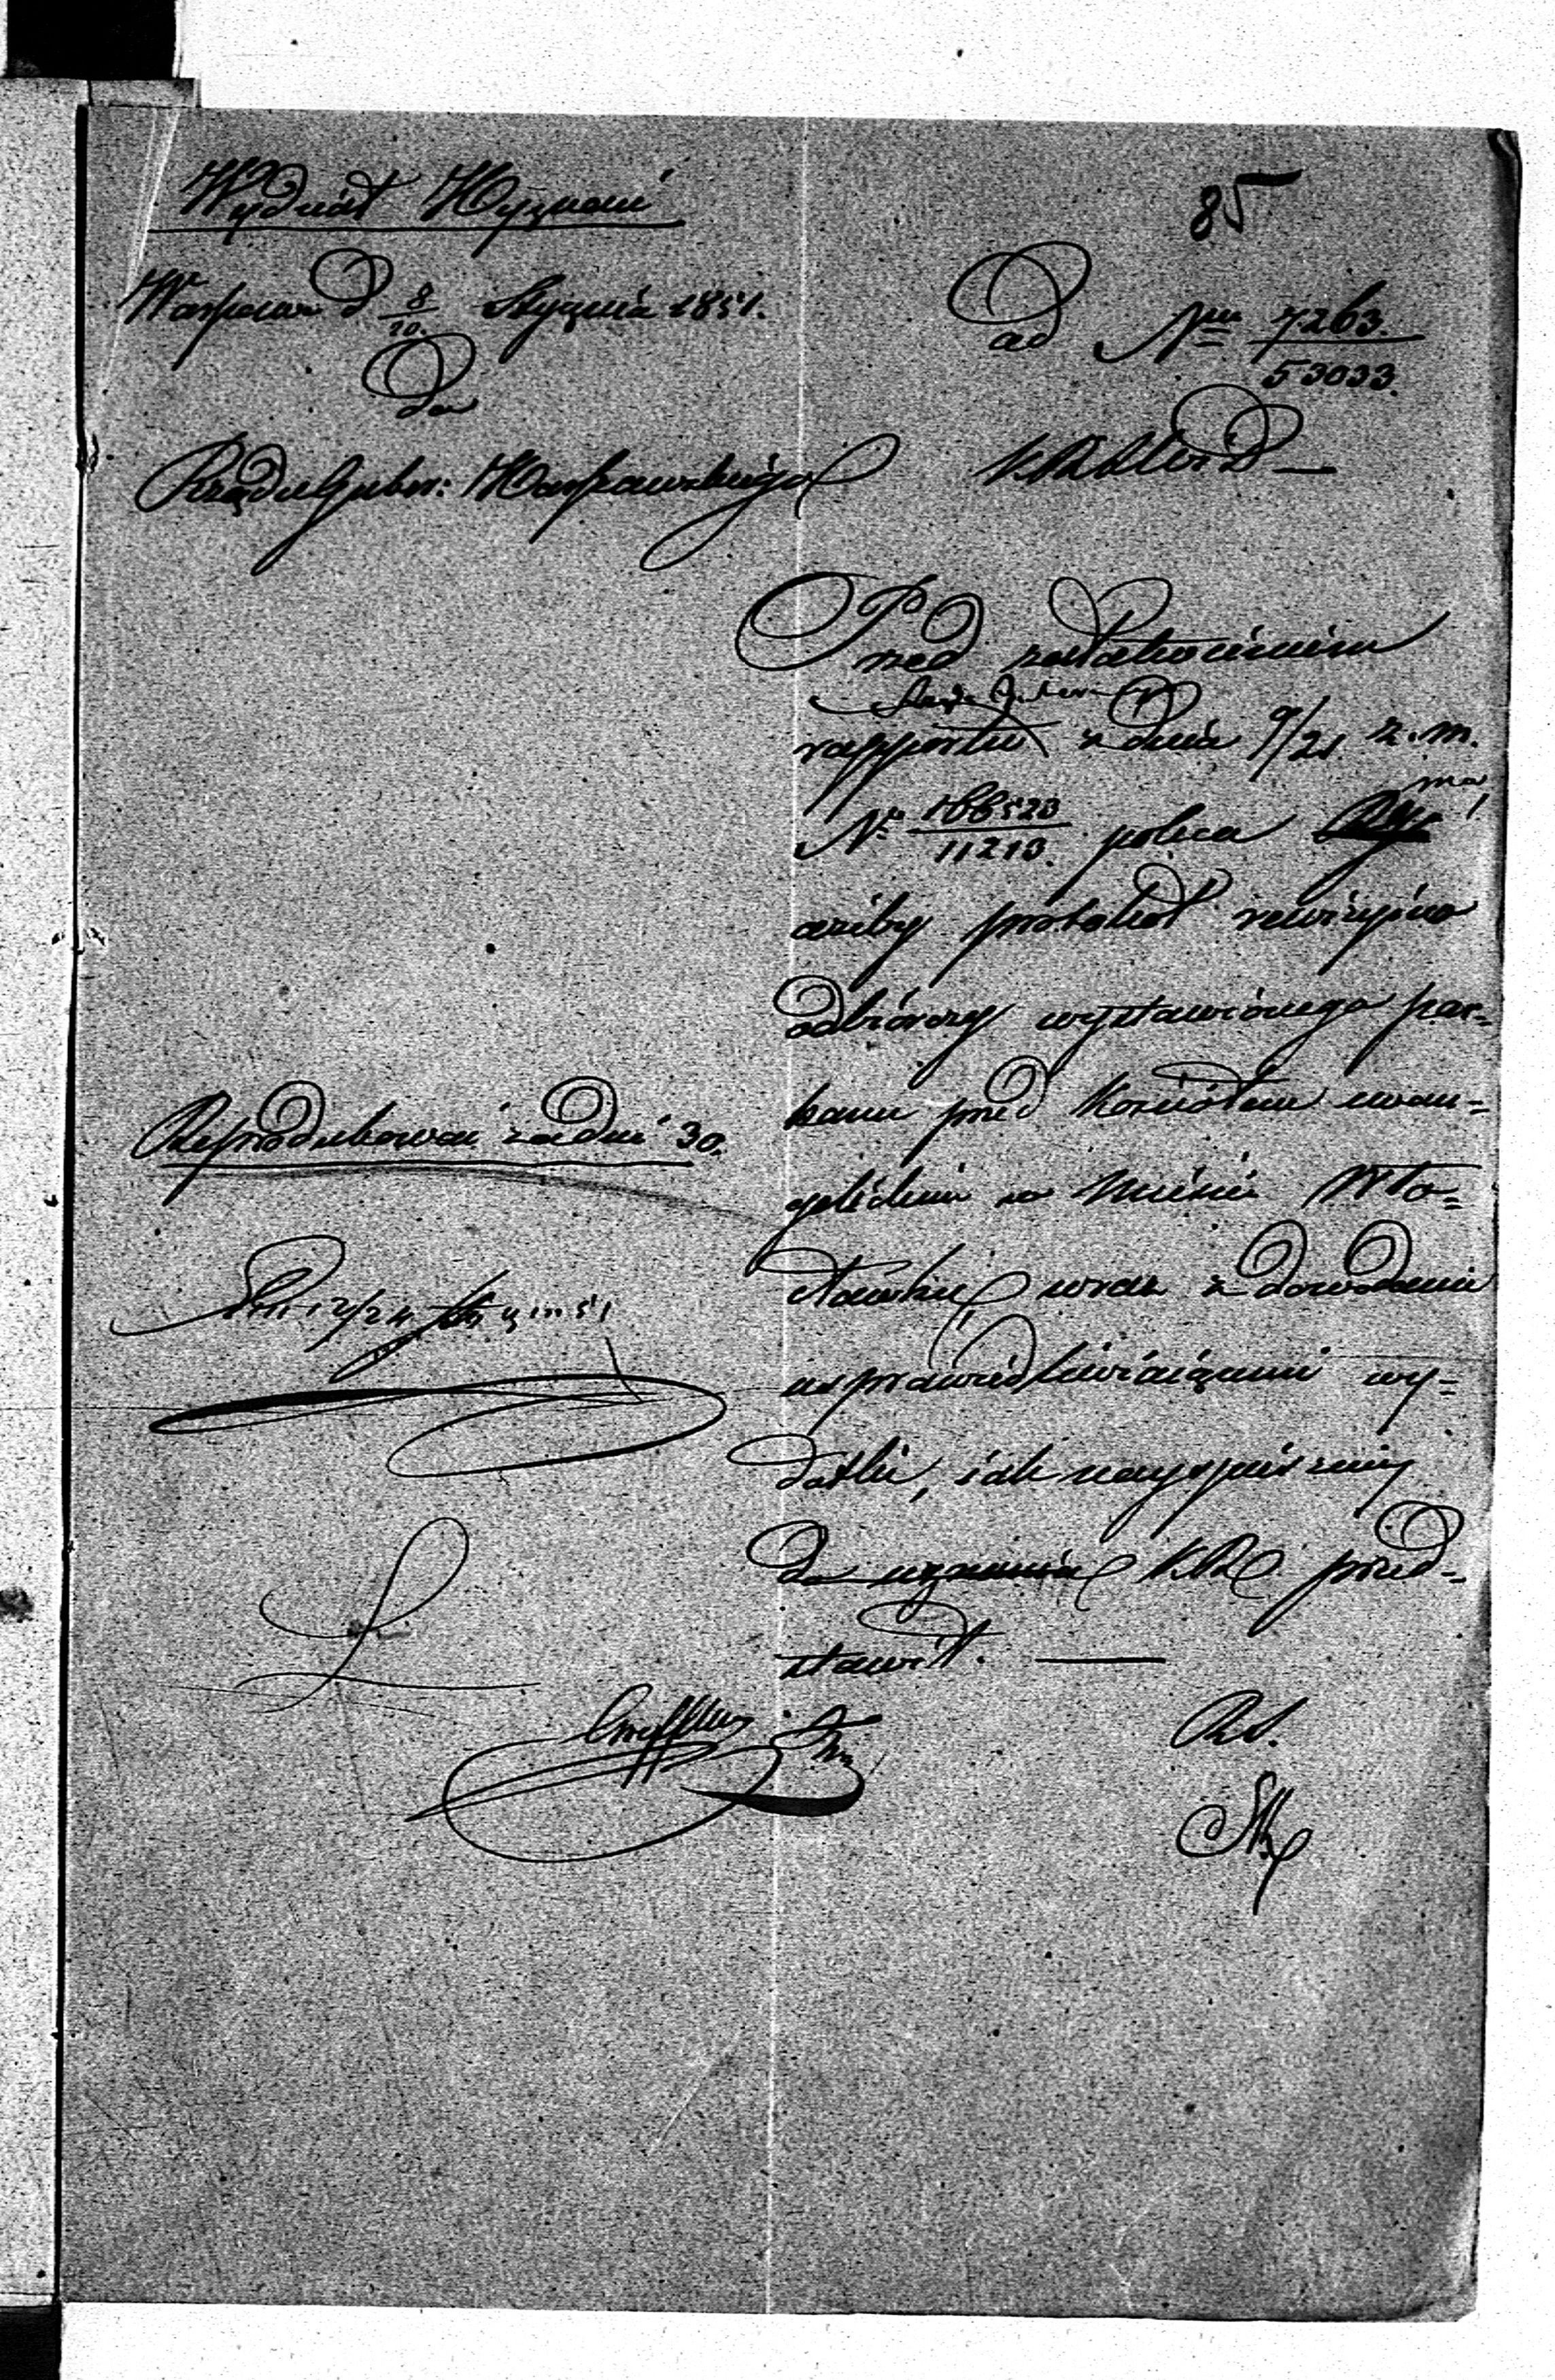 Wydział Wyznań
85
Warszawa d 8/20 Stycznia 1851.
ad Nrm 7263/53033.
Do
Rządu Gubern: Warszawskiego
Przed załatwieniem
rapportu z dnia 9/21 z. m.
Nr 166520/11210. poleca mu,
ażeby protokół rewizyjno
odbiorczy wystawionego par=
kanu przed Kościołem ewan=
gelickim w Mieście Wło=
cławku wraz z dowodami
usprawiedliwiaiącemi wy=
datki, iak nayspieszniey
do uznania KR. przed=
stawił.
Reprodukować za dni 30.